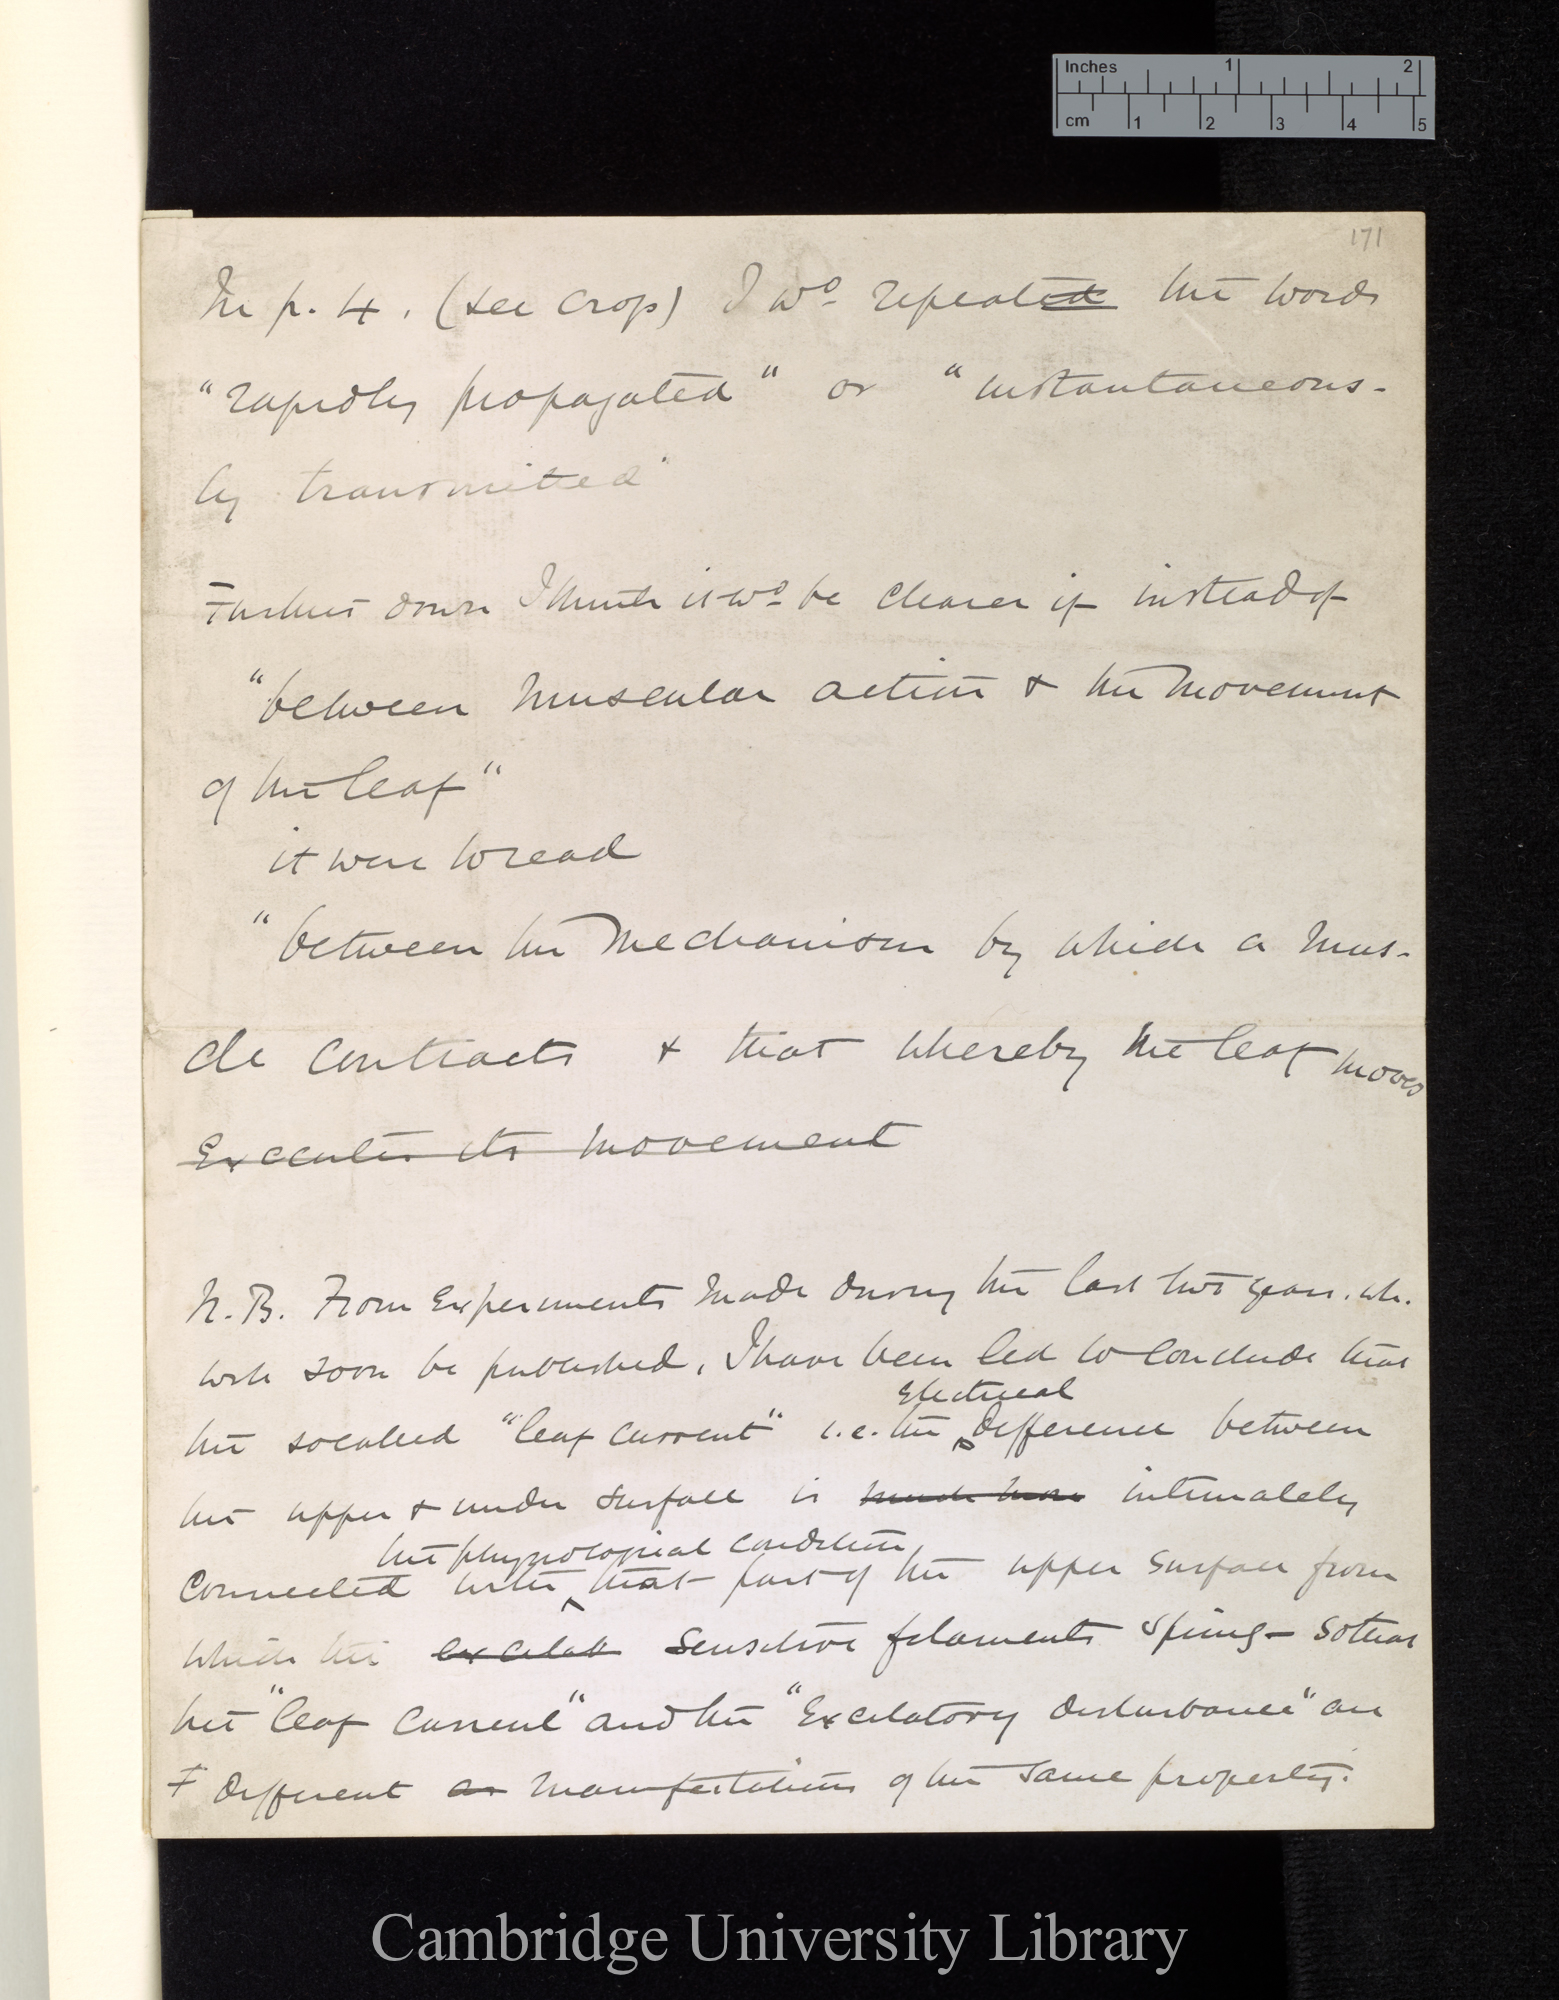 Inches 1 2
cm 1 2 3 4 5
171
In p. 4. (see crop) I wd. repeated the words
"rapidly propagated" or "instantaneous-
ly transmitted"
Further down I think it wd be clearer if instead of
"between muscular action & the movement
of the leaf"
it were to read
"between the mechanism by which a mus-
cle contracts & that whereby the leaf moves
Executes its movement
N.B. From Experiments made during the last two years. wh.
will soon be published, I have been led to conclude that
Electrical
the socalled "leaf current" i.e. the difference between
the upper & under surface is much more intimately
the physiological condition
connected with that part of the upper surface from
which the excitab sensitive filaments spring – so that
the "leaf current" and the "Excitatory disturbance" are
different as manifestations of the same property.
Cambridge University Library